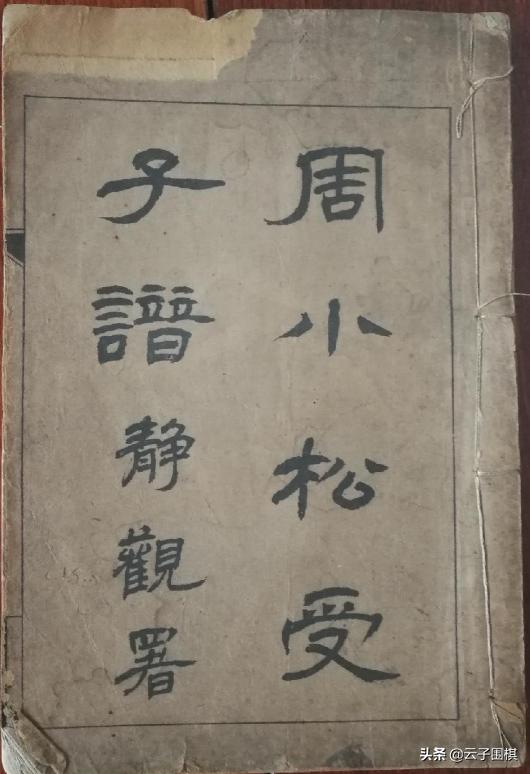 周小松受
子譜靜觀署
头条 @云子围棋